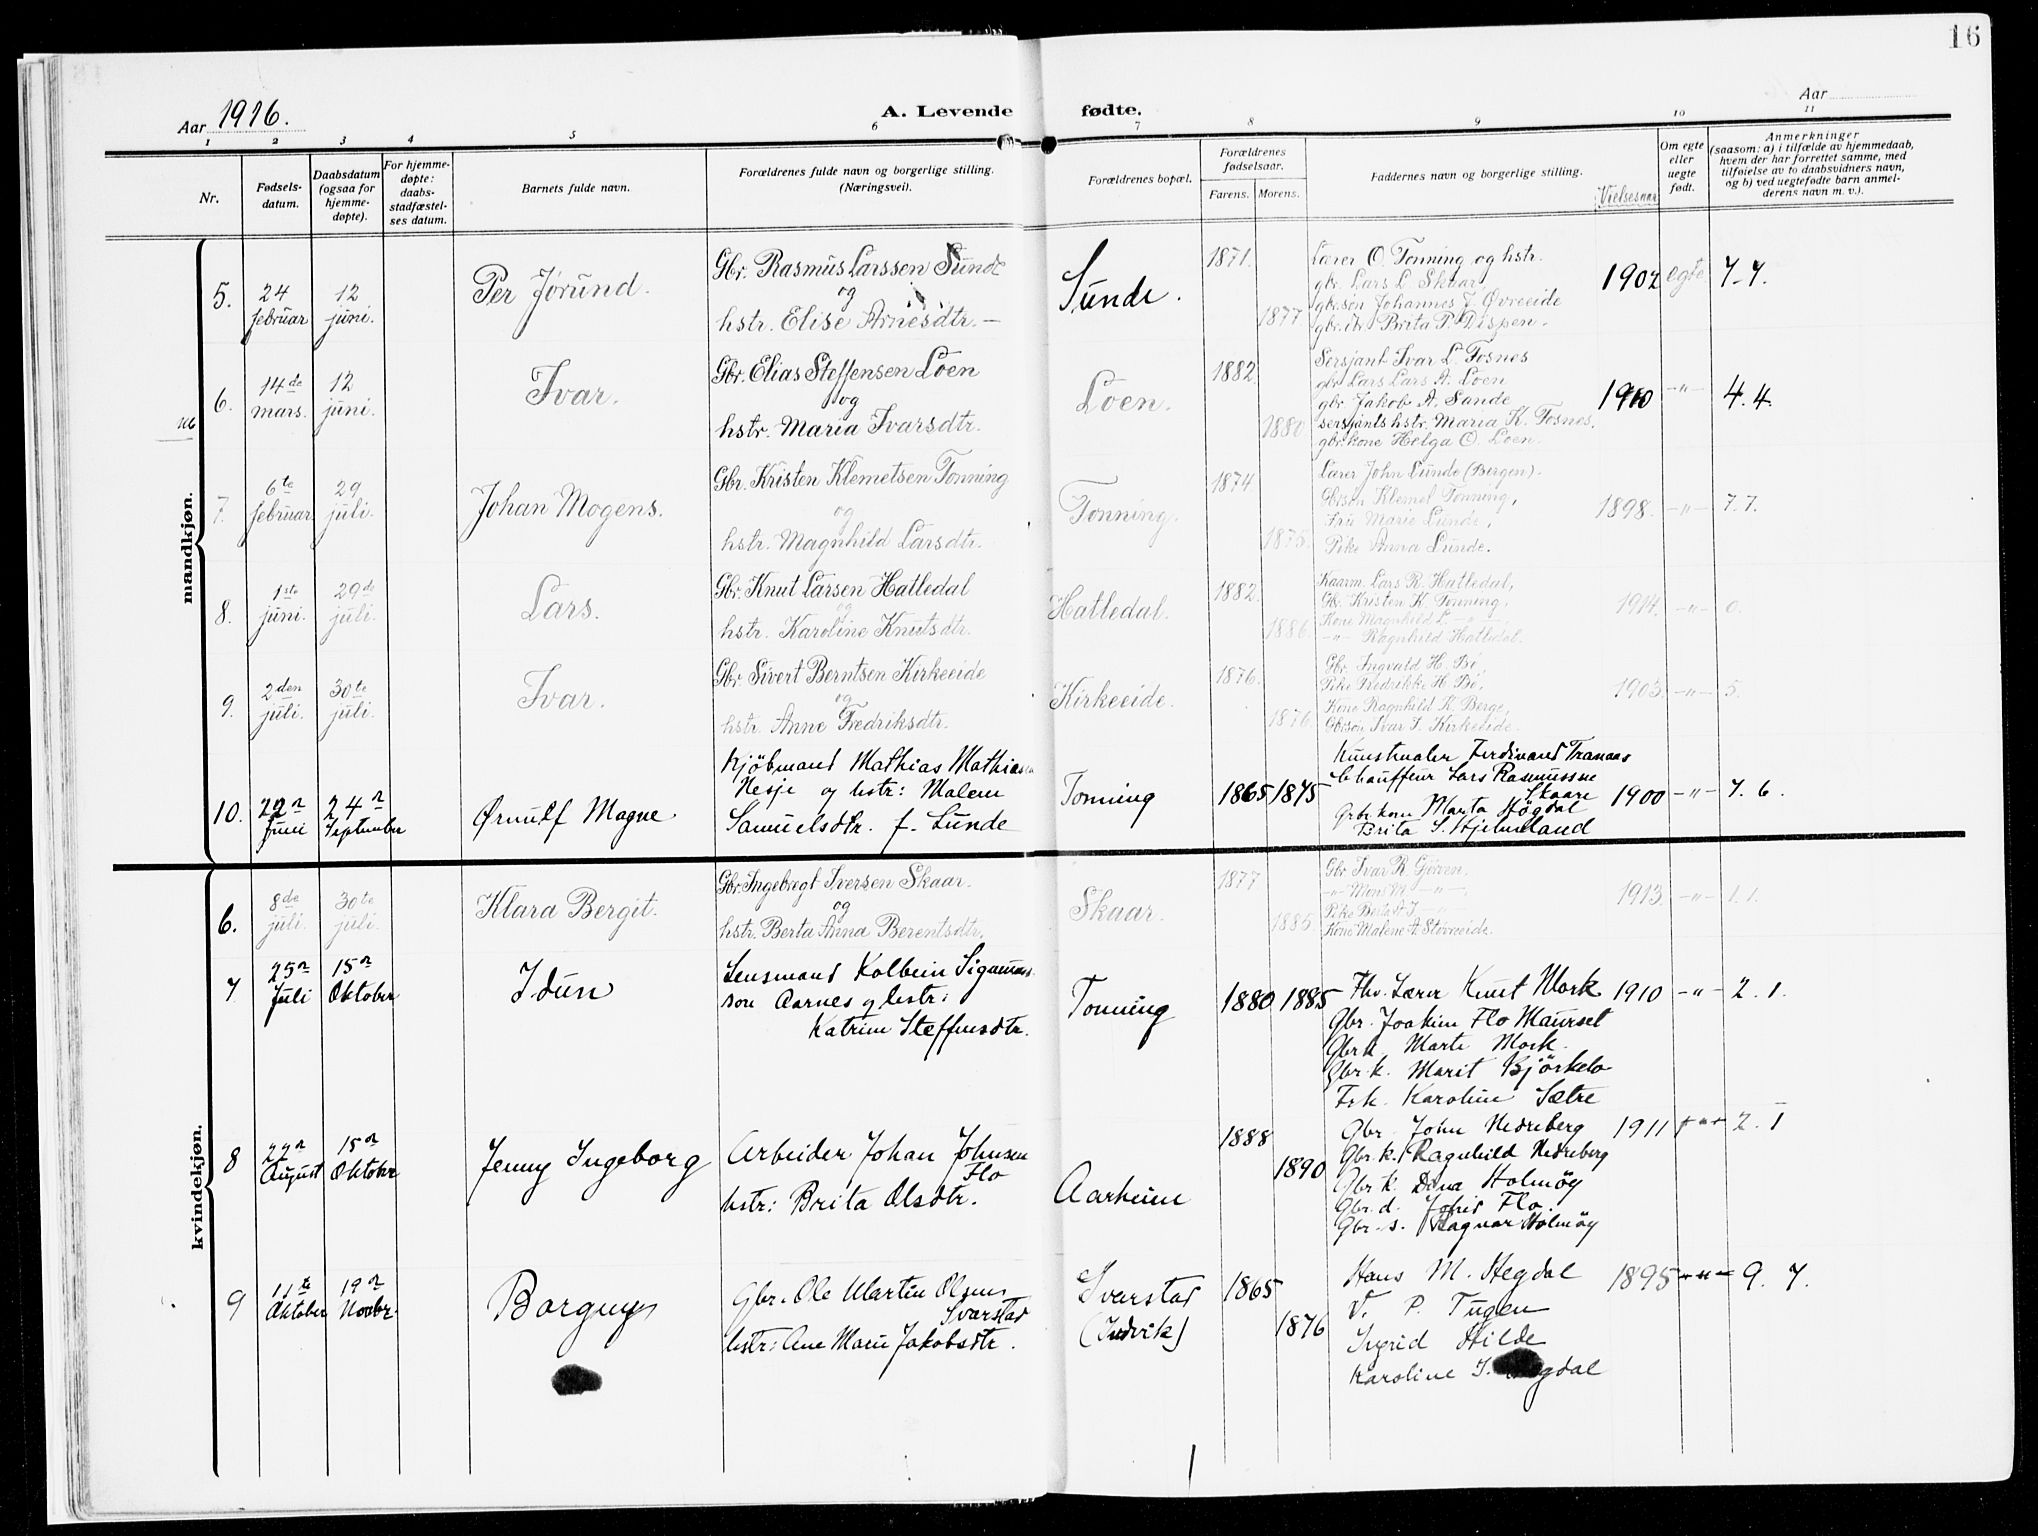 16
Aar 1916.
A. Levende fødte.
Aar
1 2 3 4 5 6 7 8 9 10 11
Nr.
Fødsels-
datum.
Daabsdatum
(ogsaa for
hjemme-
døpte).
For hjemme-
døpte:
daabs-
stadfæstel-
ses datum.
Barnets fulde navn.
Forældrenes fulde navn og borgerlige stilling.
(Næringsvei).
Forældrenes bopæl.
Forældrenes
fødselsaar.
Farens. Morens.
Faddernes navn og borgerlige stilling.
Vielsesaar
Om egte
eller
uegte
født.
Anmerkninger
(saasom: a) i tilfælde av hjemmedaab,
hvem der har forrettet samme, med
tilføielse av to daabsvidners navn,
og b) ved uegtefødte barn anmel-
derens navn m. v.).
mandkjøn.
5.
24
februar
12
juni.
Per Jørund.
Gbr. Rasmus Larssen Sunde
og
hstr. Elise Arnesdtr. —
Sunde.
1871.
1877
Lærer O. Tonning og hstr.
gbr. Lars L. Skaar,
gbr.søn Johannes J. Øvreeide
gbr.dtr Brita P. Dispen.
1902
egte
7-7.
6.
14de
mars.
12
juni.
Ivar.
Gbr. Elias Steffensen Loen
og
hstr. Maria Ivarsdtr.
Loen.
1882
1880
Sersjant Ivar L. Fosnes
gbr. Lars Lars A. Loen
gbr. Jakob A. Sande
sersjants hstr. Maria K. Fosnes,
gbr.kone Helga O. Loen.
1910
-"-
4.4.
7.
6te
februar
29
juli.
Johan Mogens.
Gbr. Kristen Klemetsen Tonning
og
hstr. Magnhild Larsdtr.
Tonning.
1874
1875.
Lærer John Lunde (Bergen).
Gbrsøn Klemet Tonning,
Fru Marie Lunde,
Pike Anna Lunde.
1898.
-"-
7.7.
8.
1ste
juni.
29de
juli.
Lars.
Gbr. Knut Larsen Hatledal
og
hstr. Karoline Knutsdtr.
Hatledal.
1882.
1886.
Kaarm. Lars R. Hatledal,
Gbr. Kristen K. Tonning,
Kone Magnhild L. -"-
-"- Ragnhild Hatledal.
1914.
-"-
0.
9.
2den
juli.
30te
juli.
Ivar.
Gbr. Sivert Berntsen Kirkeeide
og
hstr. Anne Fredriksdtr.
Kirkeeide.
1876.
1876
Gbr. Ingvald H. Bø,
Pike Fredrikke H. Bø,
Kone Ragnhild K. Berge,
Gbrsøn Ivar S. Kirkeeide
1903.
-"-
5.
10.
22n
Juni
24n
September
Ørnulf Magne
Kjöbmand Mathias Mathiasen
Nesje og hstr: Malene
Samuelsdtr. f. Lunde
Tonning
1865
1875
Kunstmaler Ferdinand Tranaas
Chauffeur Lars Rasmussen
Skaare
Gbr.kone Marta Högdal
Brita S. Hjelmeland
1900
-"-
7. 6.
kvindekjøn.
6.
8de
juli.
30te
juli.
Klara Bergit.
Gbr. Ingebregt Iversen Skaar.
og
hstr. Berta Anna Berentsdtr.
Skaar.
1877
1885.
Gbr. Ivar R. Gjørven.
-"- Mons M. -"-
Pike Berta A. J. -"-
Kone Malene A. Storeeide.
1913.
-"-
1.1.
7
25n
Juli
15n
Oktober
Idun
Lensmand Kolbein Sigmunds
son Aarnes og hstr:
Katrine Steffensdtr.
Tonning
1880
1885
Fhv. Lærer Knut Mork
Gbr. Joakim Flo Maurset
Gbr.k. Marte Mork.
Gbr.k. Marit Björkelo
Frk. Karoline Sætre
1910
-"-
2. 1.
8
22n
August
15n
Oktober
Jenny Ingeborg
Arbeider Johan Johnsen
Flo
hstr: Brita Olsdtr.
Aarheim
1888
1890
Gbr. John Nedreberg
Gbr.k. Ragnhild Nedreberg
Gbr.k. Dina Holmöy
Gbr.d. Jofrid Flo.
Gbr.s. Ragnar Holmöy
1911
-"-
2. 1
9
11te
Oktober
19n
Novbr.
Borguy
Gbr. Ole Martin Olsens
Svarstad
hstr: Ane Marie Jakobsdtr.
Svarstad
(Indvik)
1865
1876
Hans M. Hegdal
V. P. Tugen
Ingrid Hilde
Karoline J. Hegdal
1895
-"-
9. 7.